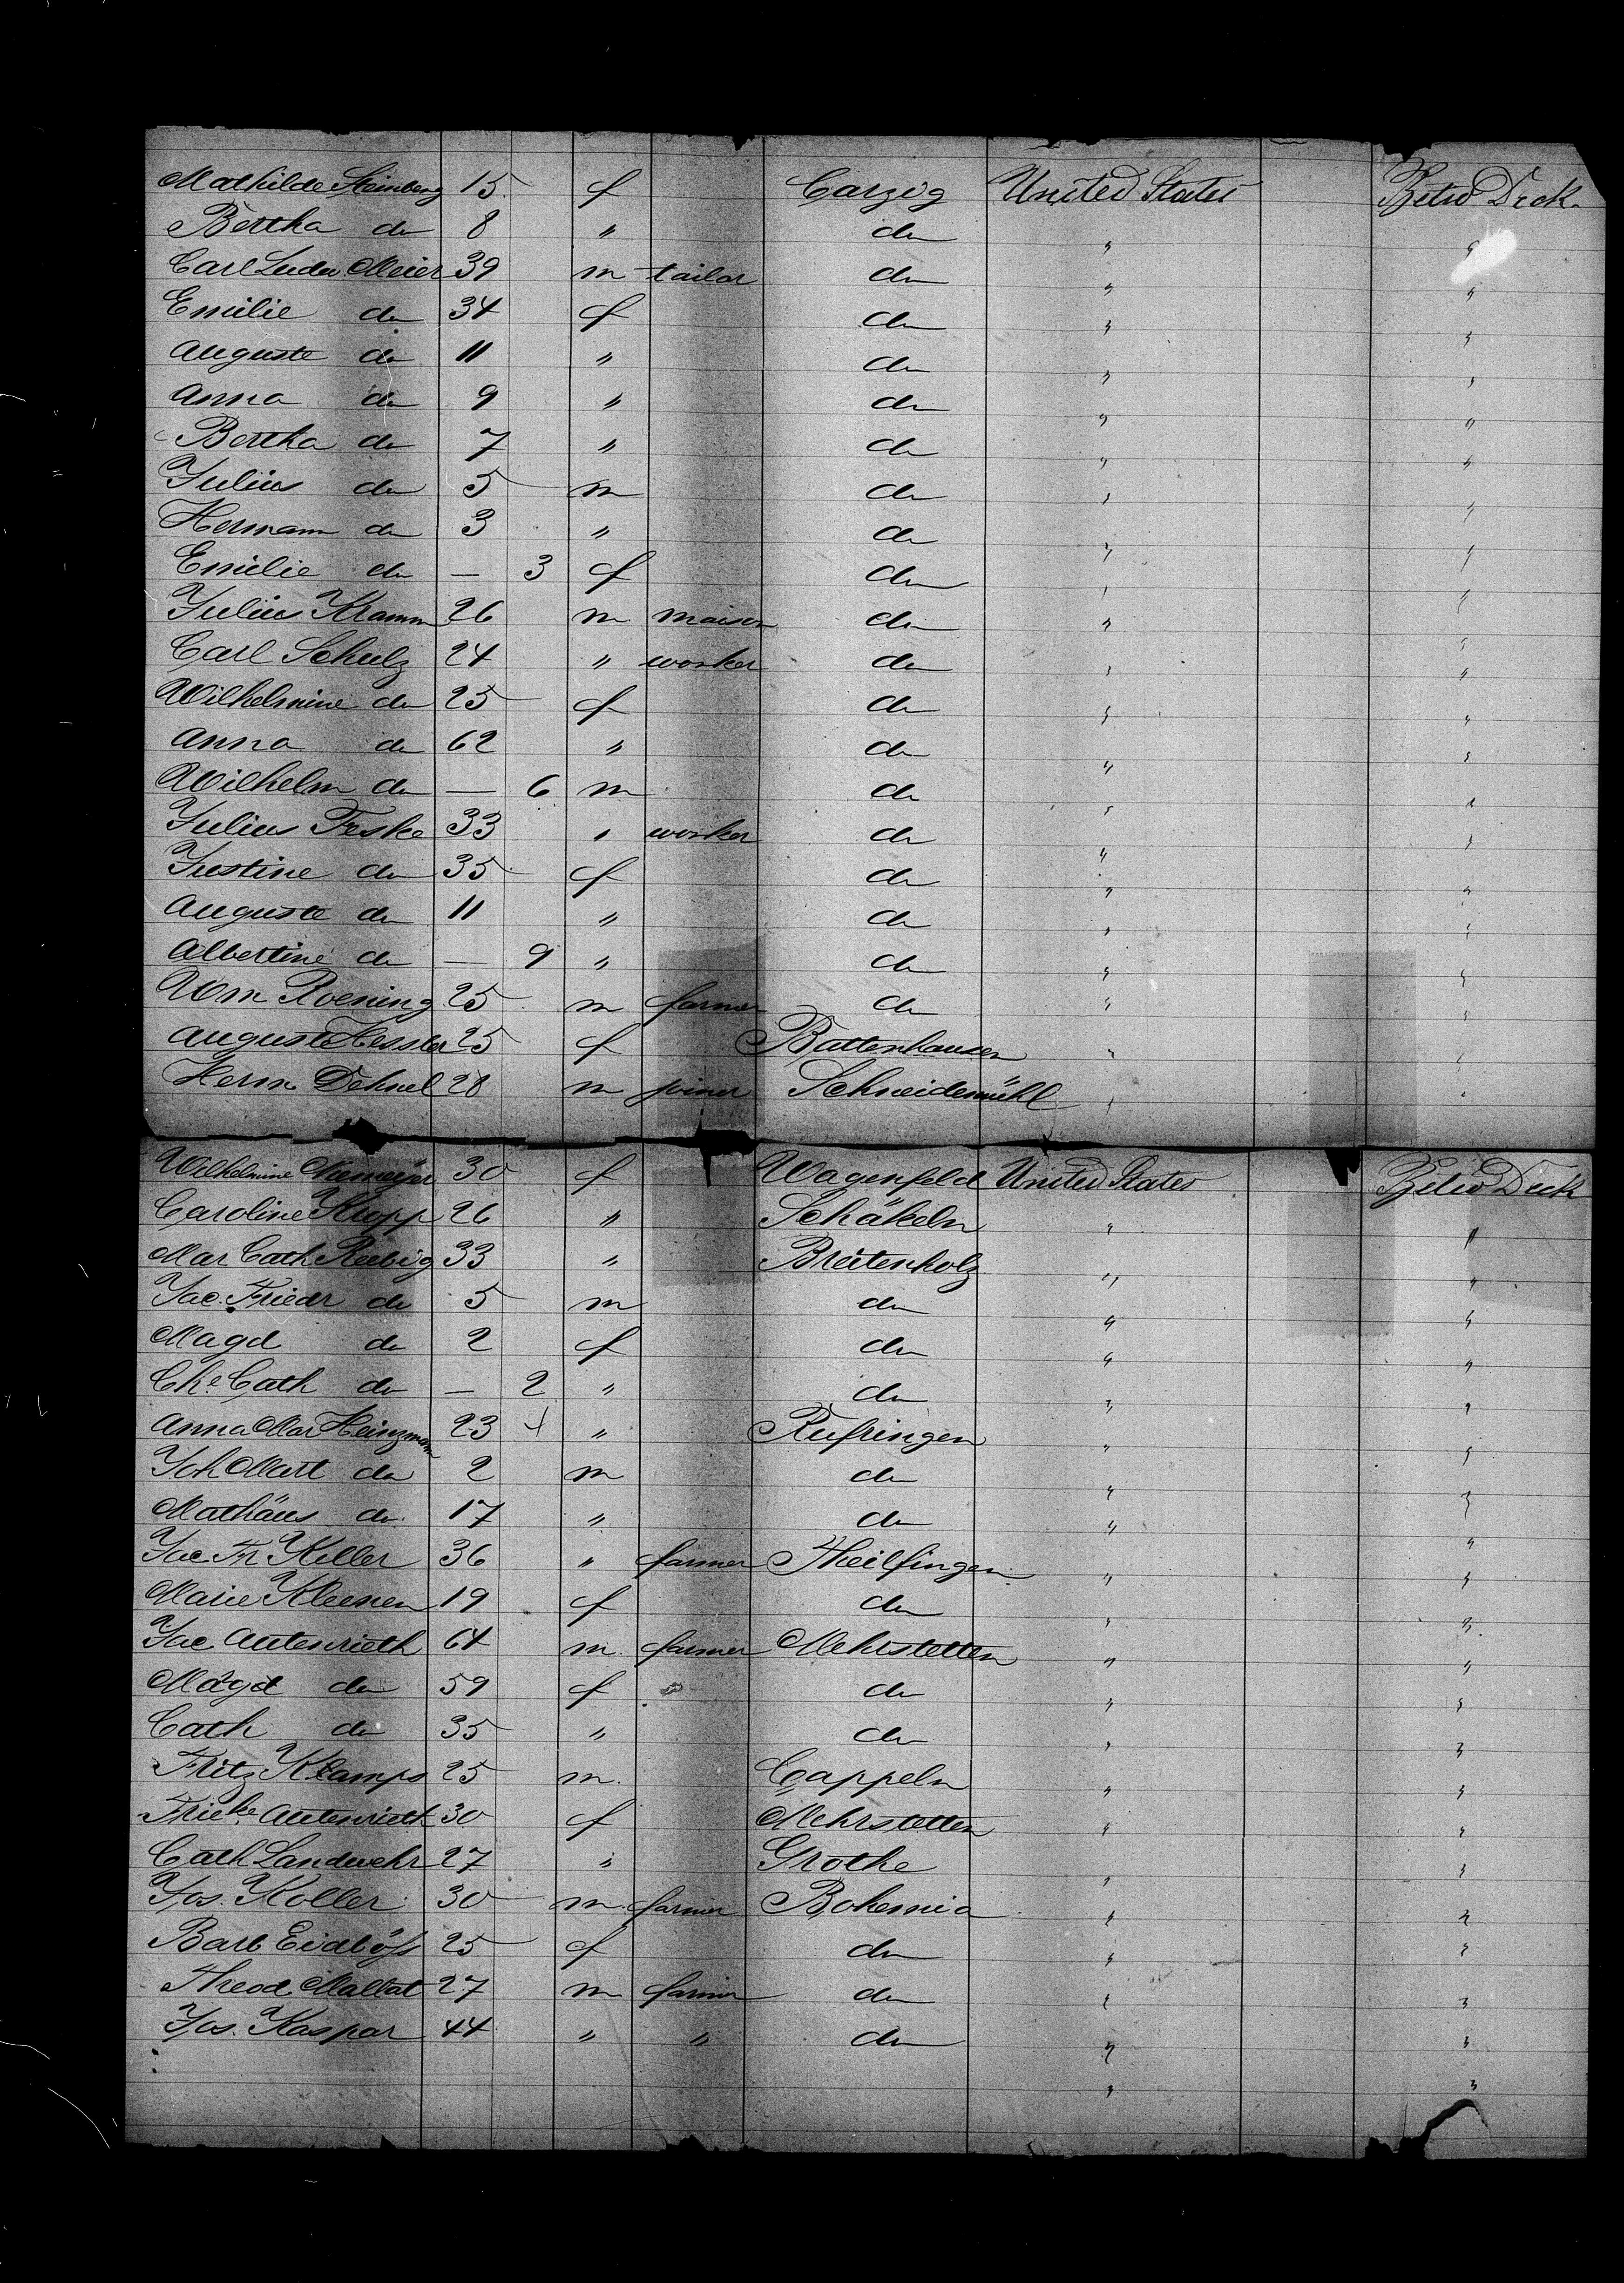 Mathilde Steinberg 15 f Carzig United States Betw Deck
Bertha do 8 " do " "
Carl Luder Meier 39 m tailor do " "
Emilie do 34 f do " "
Auguste do 11 " do " "
Anna do 9 " do " "
Bertha do 7 " do " "
Julius do 5 m do " "
Hermann do 3 " do " "
Emilie do — 3 f do " "
Julius Kramm 26 m maison do " "
Carl Schulz 24 " worker do " "
Wilhelmine do 25 f do " "
Anna do 62 " do " "
Wilhelm do — 6 m do " "
Julius Feske 33 " worker do " "
Justine do 35 f do " "
Auguste do 11 " do " "
Albertine do — 9 " do " "
Wm Roening 25 m farmer do " "
Auguste Hessler 25 f Battenhausen " "
Herm Dehnel 28 m joiner Schneidemühl " "
Wilhelmine 30 f Wagenfeld United States Betw Deck
Caroline Kropp 26 " Schäkeln " "
Mar Cath Reebig 33 " Breitenholz " "
Jac. Friedr do 5 m do " "
Magd do 2 f do " "
Che Cath do — 2 " do " "
Anna Mar Heinzmann 23 + " Rufringen " "
Joh Mart do 2 m do " "
Mathäus do 17 " do " "
Jac. Fr Keller 36 " farmer Theilfingen " "
Marie Kleenen 19 f do " "
Jac Autenrieth 64 m farmer Mehrstetten " "
Magd do 59 f do " "
Cath do 35 " do " "
Fritz Klamps 25 m. Cappeln " "
Frieke. Autenrieth 30 f Mehrstetten " "
Cath Landwehr 27 " Grothe " "
Jos. Koller 30 m farmer Bohemia " "
Barb 25 f do " "
Theod Mallat 27 m farmer do " "
Jos. Kaspar 44 " " do " "
" "